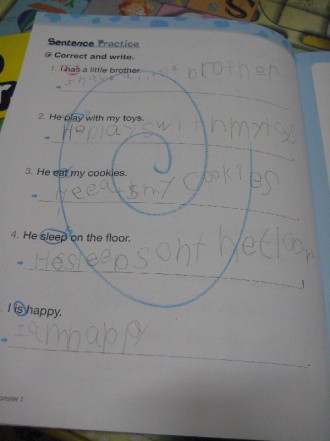 Sentence Practice
Correct and write.
1. I has a little brother.
I have little brother
2. He play with my toys.
He plays with my toys
3. He eat my cookies.
He eats my cookies
4. He sleep on the floor.
He sleeps ont hefloor
I is happy.
I am happy
onster 1